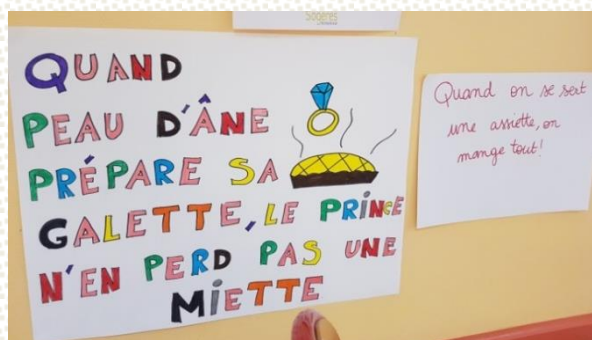 Sogeres
QUAND
PEAU D'ÂNE
PRÉPARE SA
GALETTE, LE PRINCE
N'EN PERD PAS UNE
MIETTE
Quand on se sert
une assiette, on
mange tout!